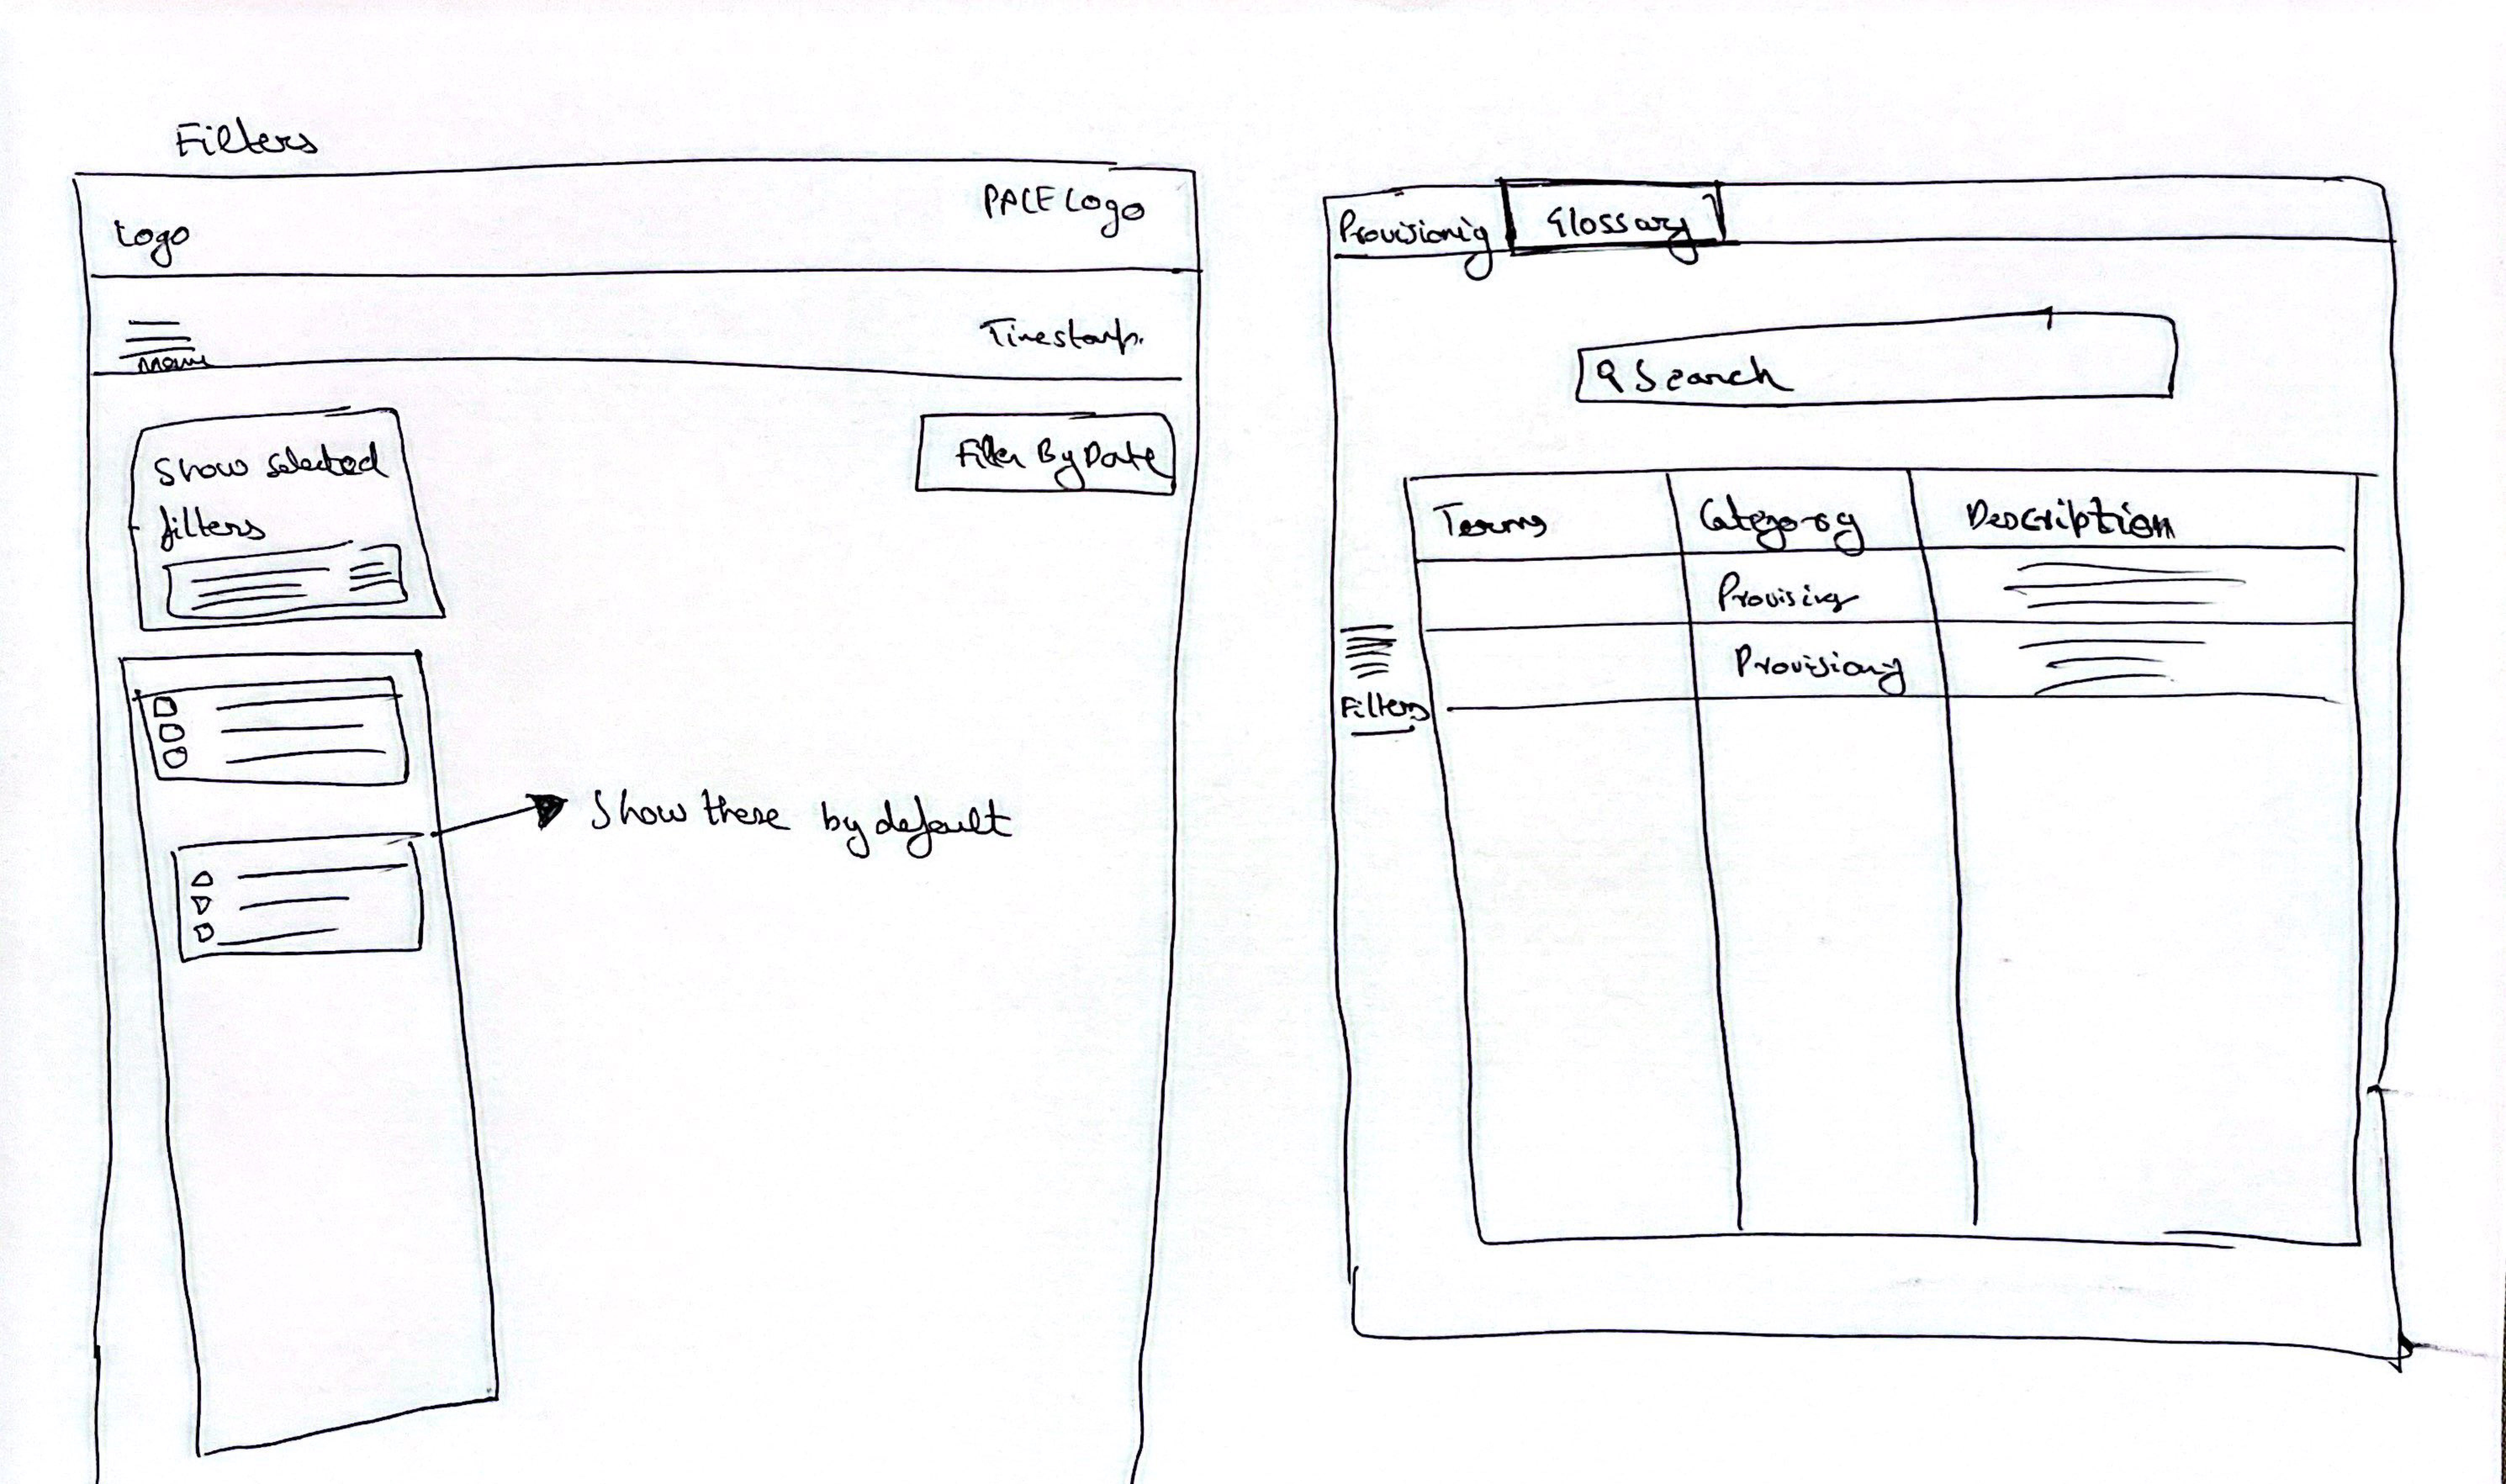 Filters
Logo
PACE Logo
Menu
Timestamp.
Show selected
filters
Filter By Date
Show these by default
Provisionig
Glossary
Search
Terms Category Description
Provising
Provisiong
Filters